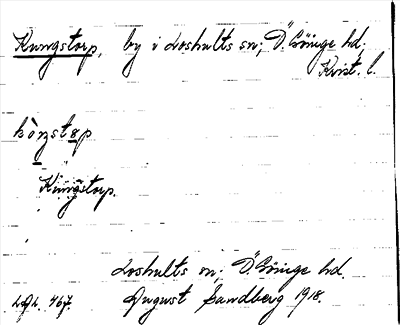 Kungstorp, by i Loshults sn; Ö. Göinge hd;
Krist. l.
kòŋstɞp
Kùngstorp.
Loshults sn; Ö. Göinge hd.
August Sandberg 1918.